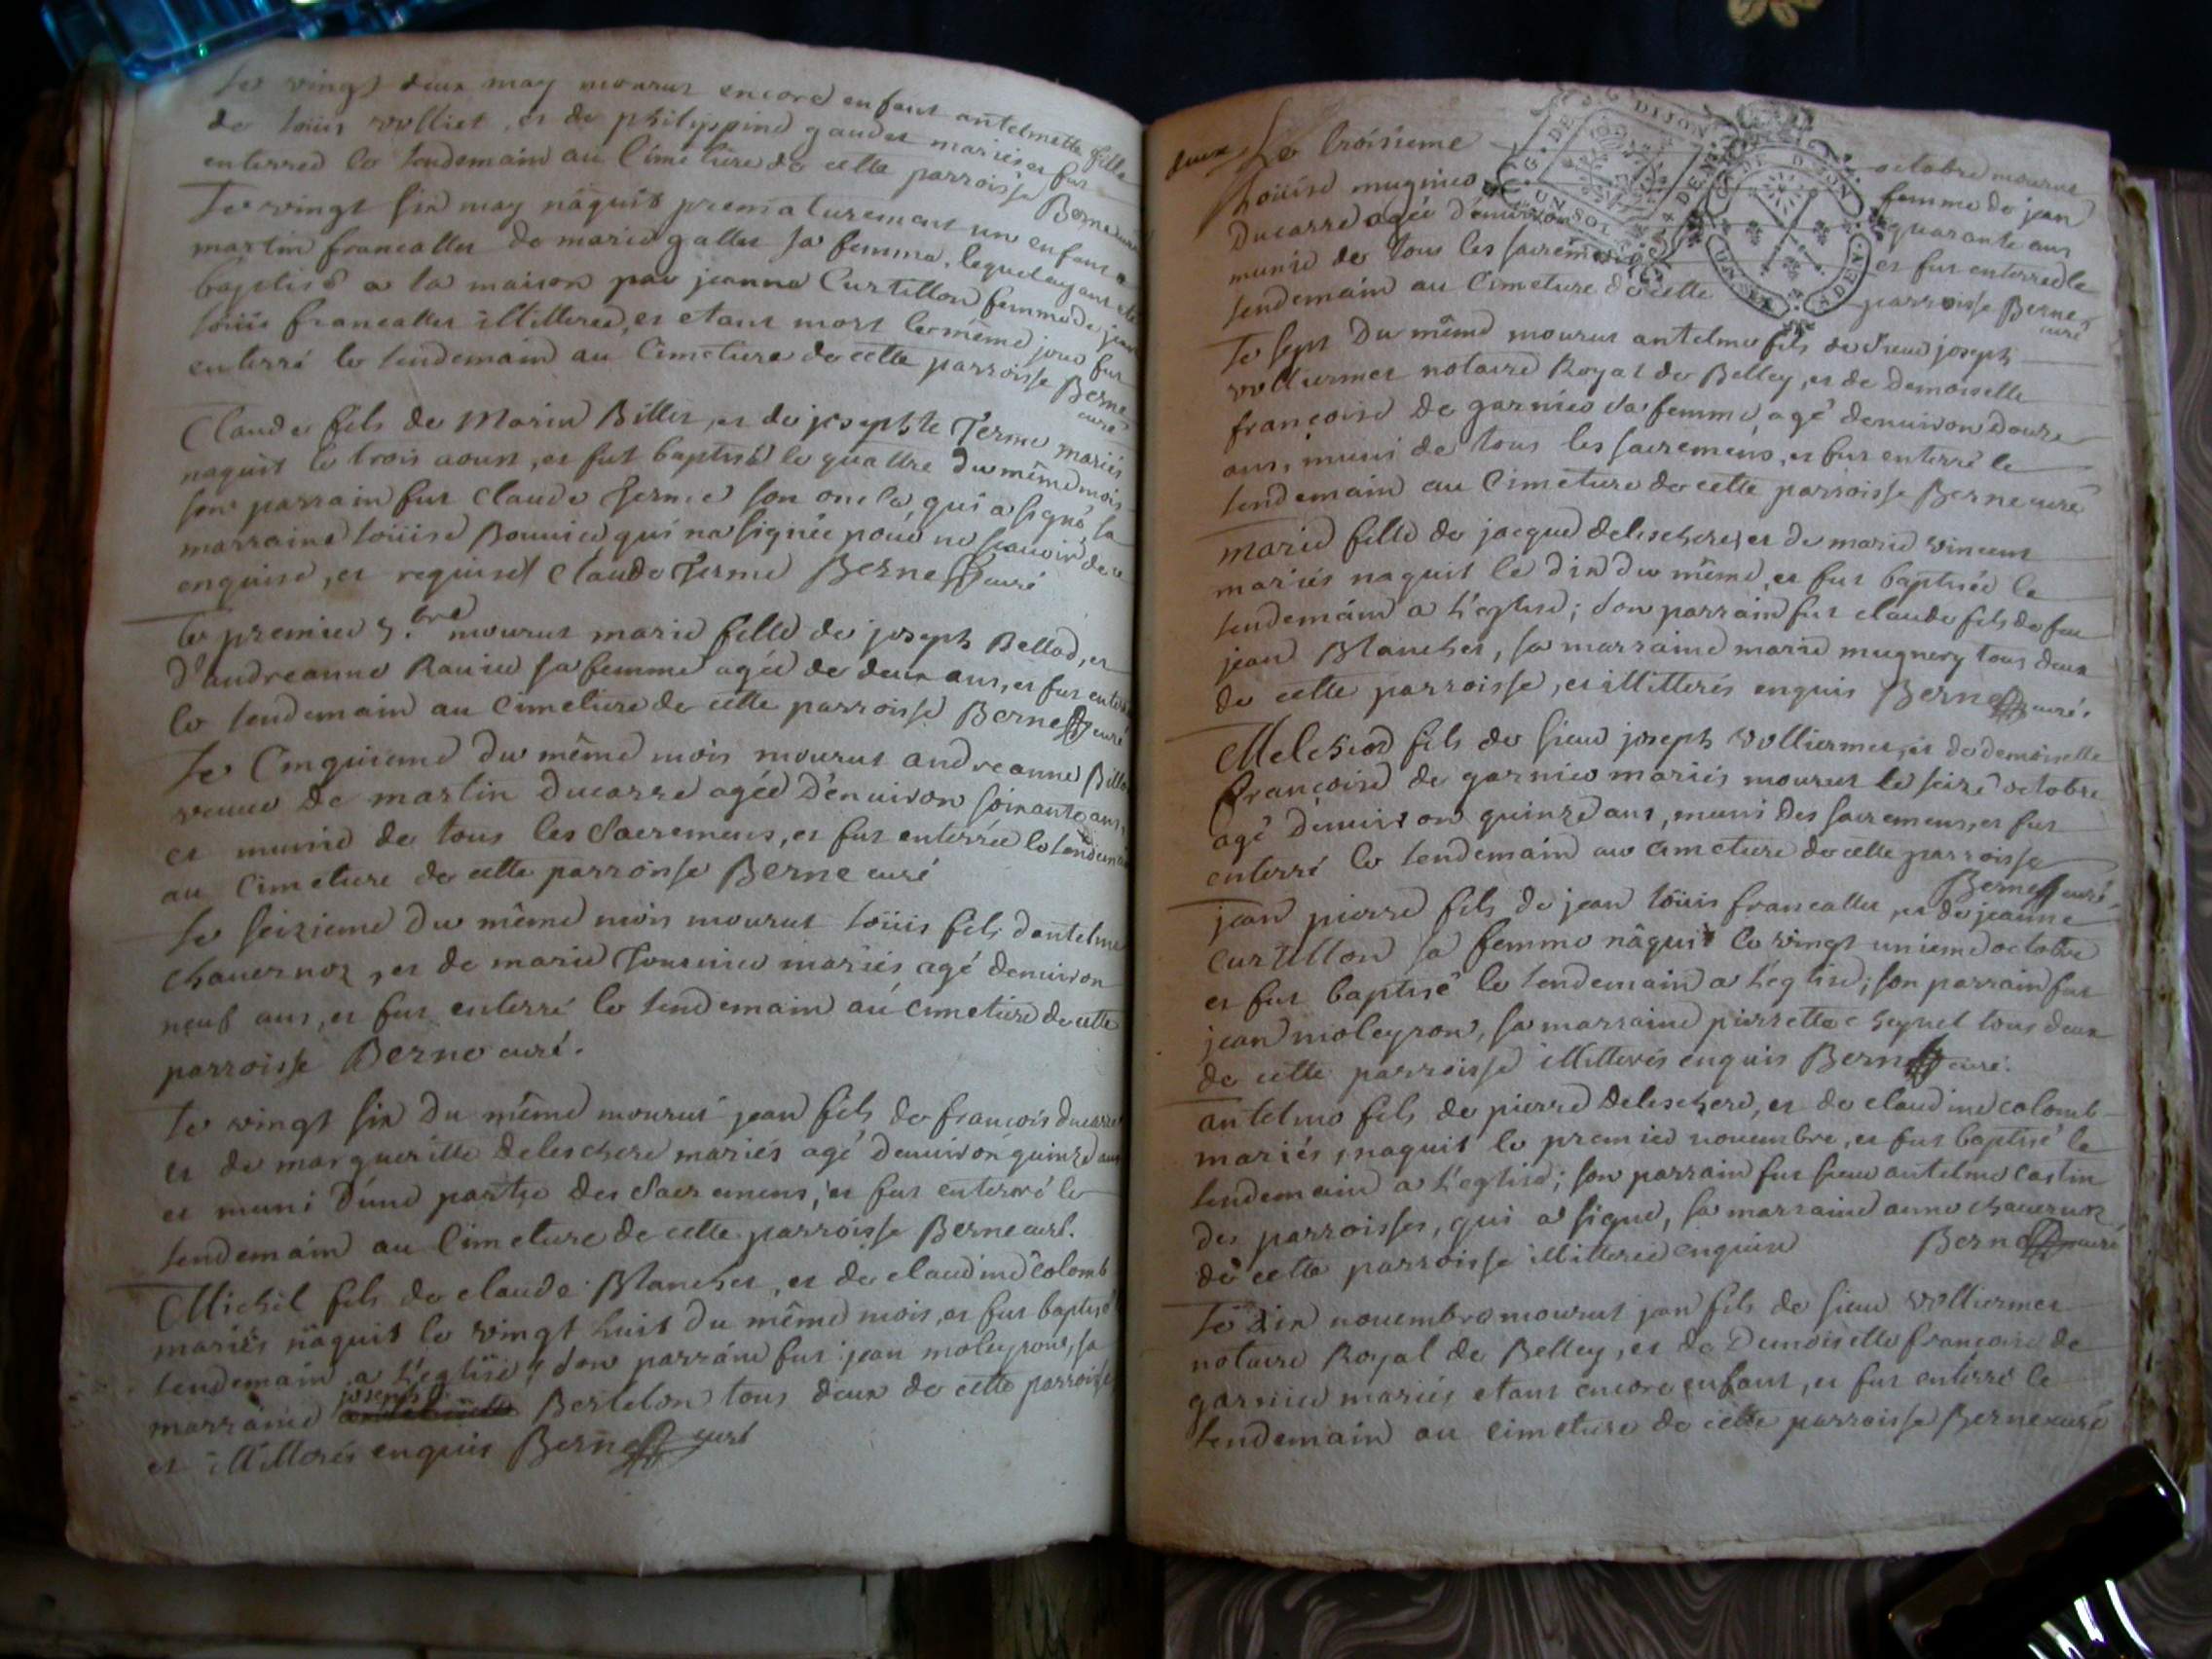 Le vingt deux may mourut encore enfant antelmette fille
de loüis volliet, et de philippine gaudet mariés et fut
enterrée le lendemain au Cimetiere de cette parroisse Berne curé
Le vingt six may nâquit prematurement un enfant a
martin francallet de marie gallet sa femme, lequel ayant eté
baptisé a la maison par jeanne Curtillon femme de jean
loüis francallet illitterée, et etant mort le même jour fut
enterré le lendemain au Cimetiere de cette parroisse Berne
curé
Claude fils de Marin Billet, et de josephte Terme mariés
naquit le trois aoust, et fut baptisé le quattre du même mois
son parrain fut Claude Terme son oncle, qui a signé, sa
marraine loüise Bouvier qui n'a signée pour ne sçavoir de ce
enquise, et requise Claude Terme Berne curé
Le premier 9.bre mourut marie fille de joseph Bellod, et
d'andreanne Ravier sa femme agée de deux ans, et fut enterrée
le lendemain au Cimetiere de cette parroisse Berne curé
Le Cinquieme du même mois mourut andreanne Billet
veuve de martin Ducarre agée d'environ soixante ans,
et munie de tous les Sacremens, et fut enterrée le lendemain
au Cimetiere de cette parroisse Berne curé
Le seizieme du même mois mourut loüis fils d'antelme
Chavernoz, et de marie mariés agé denviron
neuf ans, et fut enterré le lendemain au cimetiere de cette
parroisse Berne curé.
Le vingt six du même mourut jean fils de françois ducarre
et de margueritte Deleschere mariés agé denviron quinze ans
et muni d'une partie des Sacremens, et fut enterré le
lendemain au Cimetiere de cette parroisse Berne curé.
Michel fils de claude Blanchet, et de claudine Colomb
mariés nâquit le vingt huit du même mois, et fut baptisé
lendemain a l'eglise; son parrain fut jean moleyron, sa
marraine josephte Bertelon tous deux de cette parroisse
et illitterés enquis Berne curé
deux
Le troisieme octobre mourut
Loüise mugnier femme de jean
Ducarre agée d'environ quarante ans
munie de tous les sacremens et fut enterrée le
lendemain au Cimetiere de cette parroisse Berne
curé
G. DE DIJON
UN SOL
4 DEN
G. DE DIJON
UN SOL
4 DEN
Le sept du même mourut antelme fils de sieur joseph
volliermet notaire Royal de Belley, et de Demoiselle
françoise de garnier sa femme, agé denviron douze
ans, muni de tous les sacremens, et fut enterré le
lendemain au Cimetiere de cette parroisse Berne curé
marie fille de jacque deleschere, et de marie vincent
mariés naquit le dix du même, et fut baptisée le
lendemain a l'eglise; son parrain fut claude fils de feu
jean Blanchet, sa marraine marie mugnery tous deux
de cette parroisse, et illitterés enquis Berne curé.
Melchior fils de sieur joseph volliermet, et de demoiselle
françoise de garnier mariés mourut le seize octobre
agé d'environ quinze ans, muni des sacremens, et fut
enterré le lendemain au cimetiere de cette parroisse
Berne curé.
jean pierre fils de jean loüis francallet, et de jeanne
curtillon sa femme nâquit le vingt unieme octobre
et fut baptisé le lendemain a l'eglise; son parrain fut
jean moleyron, sa marraine pierrette cheynel tous deux
de cette parroisse illitterés enquis Berne curé.
antelme fils de pierre Deleschere, et de claudine colomb
mariés, naquit le premier novembre, et fut baptisé le
lendemain a l'eglise; son parrain fut sieur antelme Castin
des parroisses, qui a signé, sa marraine anne chavernoz
de cette parroisse illitterée enquise Berne curé
Le dix novembre mourut jean fils de sieur volliermet
notaire Royal de Belley, et de Demoiselle françoise de
garnier mariés etant encore enfant, et fut enterré le
lendemain au cimetiere de cette parroisse Berne curé